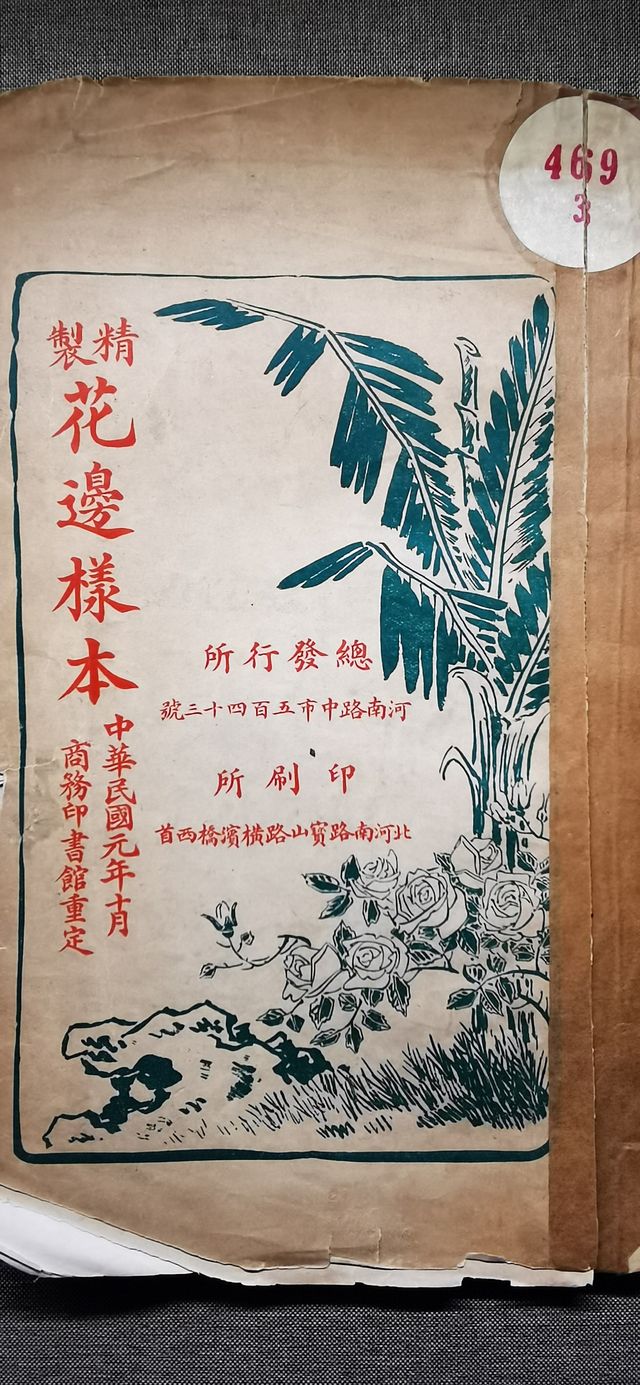 469
3
精製
花邊樣本
中華民國元年十月
商務印書館重定
總發行所
河南路中市五百四十三號
印刷所
北河南路寶山路橫濱橋西首